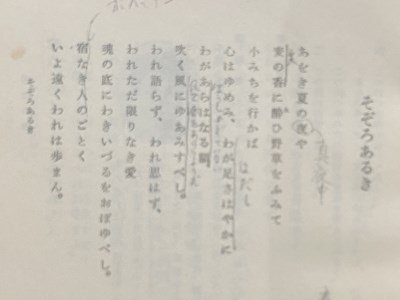 そぞろあるき
あをき夏の夜や
麦の香に醉ひ野草をふみて
小みちを行かば
心はゆめみ、わが足さはやかに
わがあらはなる額、
吹く風にゆあみすべし。
われ語らず、われ思はず、
われただ限りなき愛
魂の底にわきいづるをおぼゆべし。
宿なき人のごとく
いよ遠くわれは歩まん。
そぞろあるき
真夜中
はだし